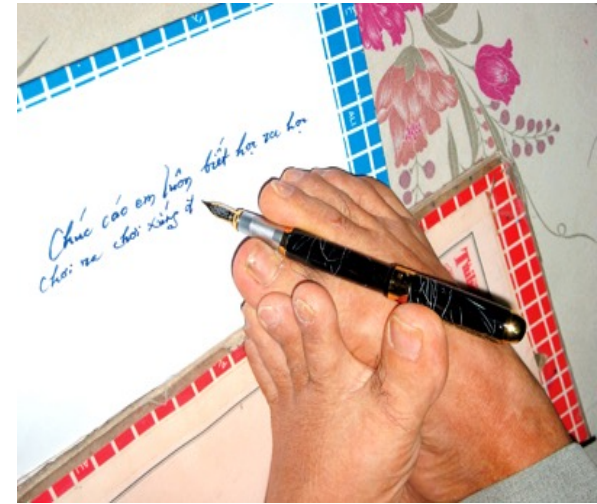 Chúc cáo em luôn biết học ra học
chơi ra chơi xứng đ
ALI